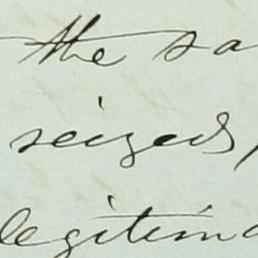 the sa
seized,
legitima